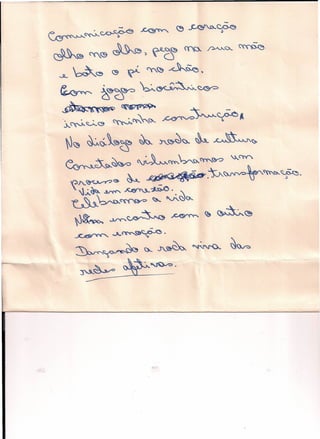 Comunicação com o coração
olho no olho, pego na sua mão
e boto o pé no chão.
Com jogos biocêntricos
início minha construção,
No diálogo da roda de cultura
Conectados vislumbramos um
processo de transformação.
Vida em conexão.
Celebramos a vida
Nesse encontro com o outro
com emoção.
Dançando a roda viva das
redes afetivas.